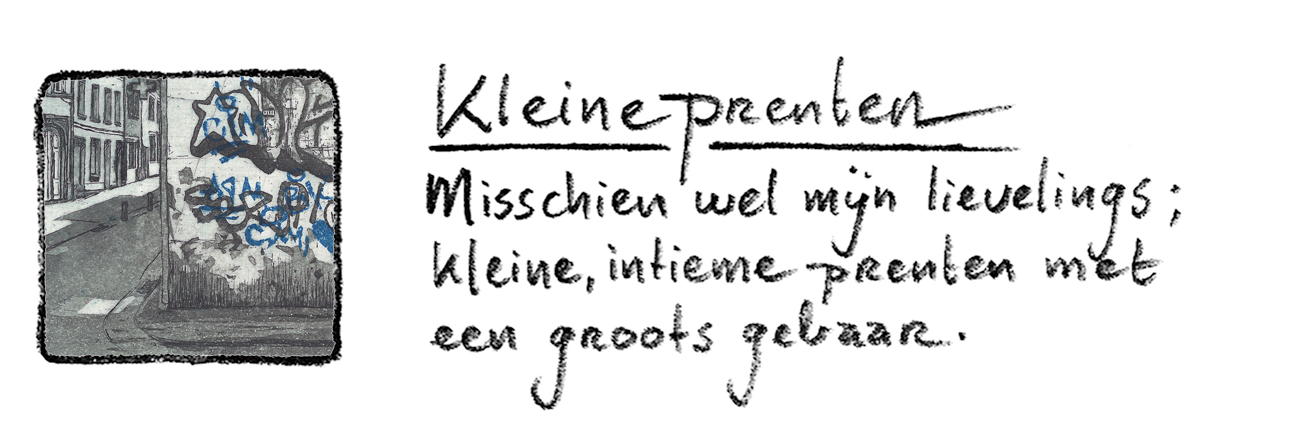 Kleine prenten
Misschien wel mijn lievelings;
kleine, intieme prenten met
een groots gebaar.